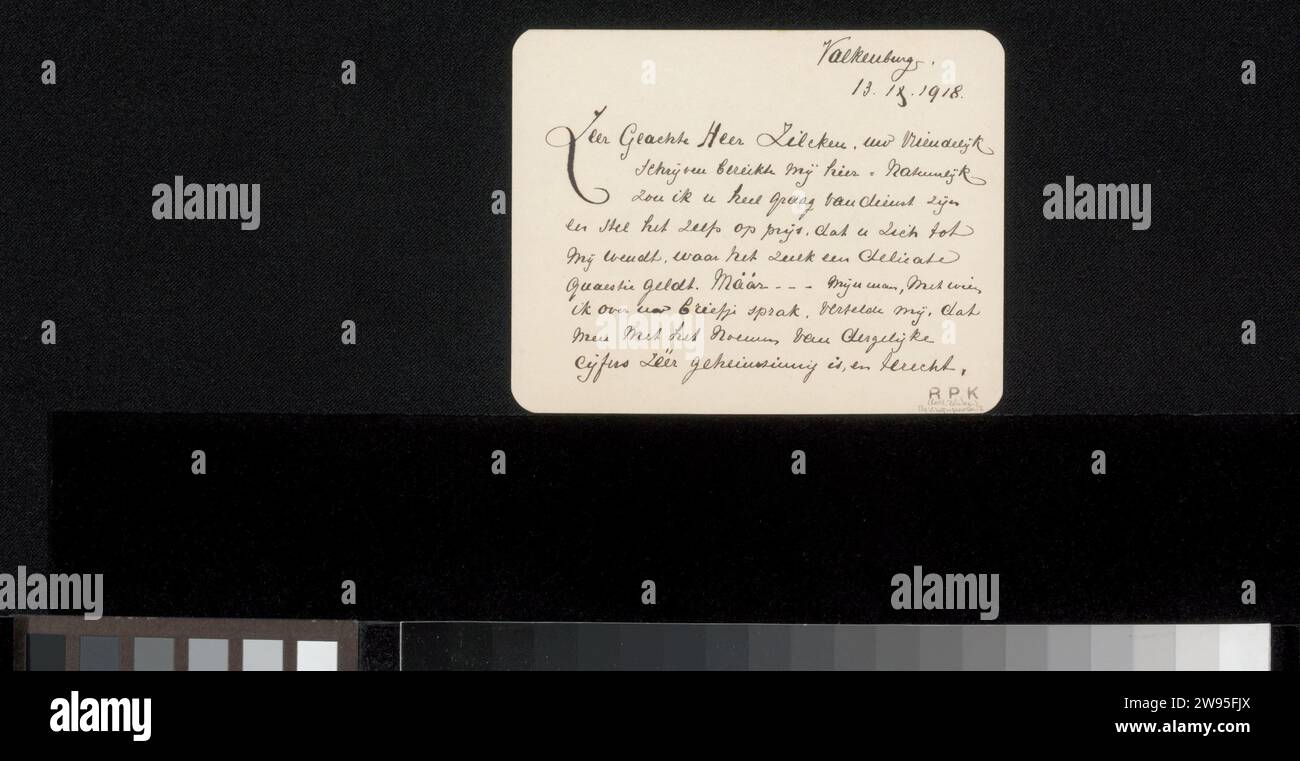 Valkenburg.
13. IX. 1918.
Zeer Geachte Heer Zilcken, uw vriendelijk
schrijven bereikte mij hier. Natuurlijk
zou ik u heel graag van dienst zijn
en stel het zelfs op prijs, dat u zich tot
mij wendt, waar het zulk een delicate
quaestie geldt. Máár --- mijn man, met wien
ik over uw briefje sprak, vertelde mij, dat
men met het noemen van dergelijke
cijfers zéér geheimzinnig is, en terecht,
R P K
alamy
Image ID: 2W95FJX
www.alamy.com